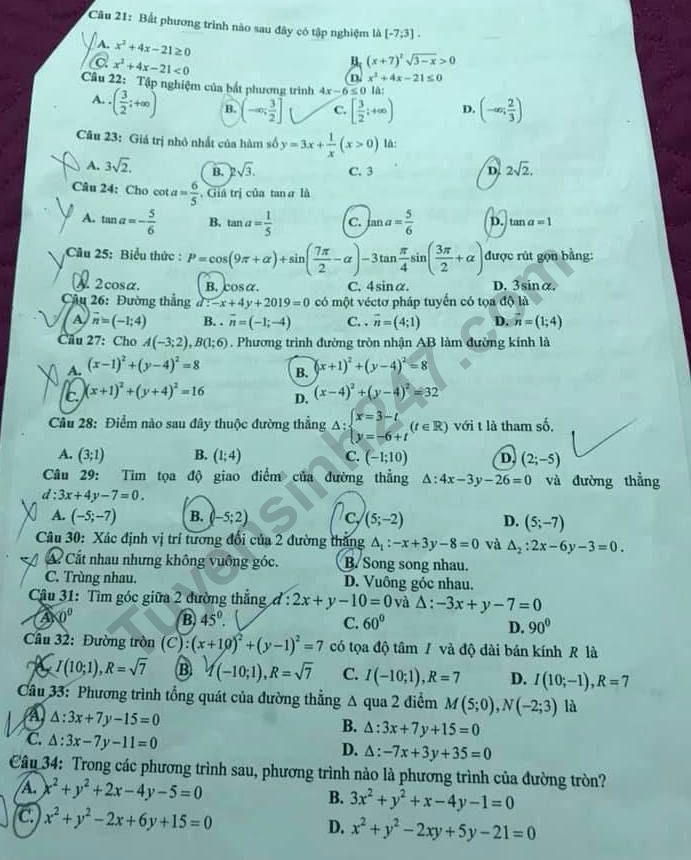 Câu 21: Bất phương trình nào sau đây có tập nghiệm là [-7;3] .
A. x² + 4x − 21 ≥ 0 B. (x+7)²√(3−x) > 0
C. x² + 4x − 21 < 0 D. x² + 4x − 21 ≤ 0
Câu 22: Tập nghiệm của bất phương trình 4x − 6 ≤ 0 là:
A. .(3/2; +∞) B. (−∞; 3/2] C. [3/2; +∞) D. (−∞; 2/3)
Câu 23: Giá trị nhỏ nhất của hàm số y = 3x + 1/x (x > 0) là:
A. 3√2. B. 2√3. C. 3 D. 2√2.
Câu 24: Cho cot a = 6/5. Giá trị của tan a là
A. tan a = −5/6 B. tan a = 1/5 C. tan a = 5/6 D. tan a = 1
Câu 25: Biểu thức : P = cos(9π + α) + sin(7π/2 − α) − 3tan π/4 sin(3π/2 + α) được rút gọn bằng:
A. 2cos α. B. cos α. C. 4sin α. D. 3sin α.
Câu 26: Đường thẳng d : −x + 4y + 2019 = 0 có một véctơ pháp tuyến có tọa độ là
A. n⃗ = (−1;4) B. . n⃗ = (−1;−4) C. . n⃗ = (4;1) D. n⃗ = (1;4)
Câu 27: Cho A(−3;2), B(1;6) . Phương trình đường tròn nhận AB làm đường kính là
A. (x−1)² + (y−4)² = 8 B. (x+1)² + (y−4)² = 8
C. (x+1)² + (y+4)² = 16 D. (x−4)² + (y−4)² = 32
Câu 28: Điểm nào sau đây thuộc đường thẳng Δ: {x = 3 − t; y = −6 + t (t ∈ ℝ) với t là tham số.
A. (3;1) B. (1;4) C. (−1;10) D. (2;−5)
Câu 29: Tìm tọa độ giao điểm của đường thẳng Δ: 4x − 3y − 26 = 0 và đường thẳng
d : 3x + 4y − 7 = 0 .
A. (−5;−7) B. (−5;2) C. (5;−2) D. (5;−7)
Câu 30: Xác định vị trí tương đối của 2 đường thẳng Δ₁ : −x + 3y − 8 = 0 và Δ₂ : 2x − 6y − 3 = 0 .
A. Cắt nhau nhưng không vuông góc. B. Song song nhau.
C. Trùng nhau. D. Vuông góc nhau.
Câu 31: Tìm góc giữa 2 đường thẳng d : 2x + y − 10 = 0 và Δ : −3x + y − 7 = 0
A. 0⁰ B. 45⁰. C. 60⁰ D. 90⁰
Câu 32: Đường tròn (C) : (x+10)² + (y−1)² = 7 có tọa độ tâm I và độ dài bán kính R là
A. I(10;1), R = √7 B. I(−10;1), R = √7 C. I(−10;1), R = 7 D. I(10;−1), R = 7
Câu 33: Phương trình tổng quát của đường thẳng Δ qua 2 điểm M(5;0), N(−2;3) là
A. Δ : 3x + 7y − 15 = 0 B. Δ : 3x + 7y + 15 = 0
C. Δ : 3x − 7y − 11 = 0 D. Δ : −7x + 3y + 35 = 0
Câu 34: Trong các phương trình sau, phương trình nào là phương trình của đường tròn?
A. x² + y² + 2x − 4y − 5 = 0 B. 3x² + y² + x − 4y − 1 = 0
C. x² + y² − 2x + 6y + 15 = 0 D. x² + y² − 2xy + 5y − 21 = 0
Tuyensinh247.com